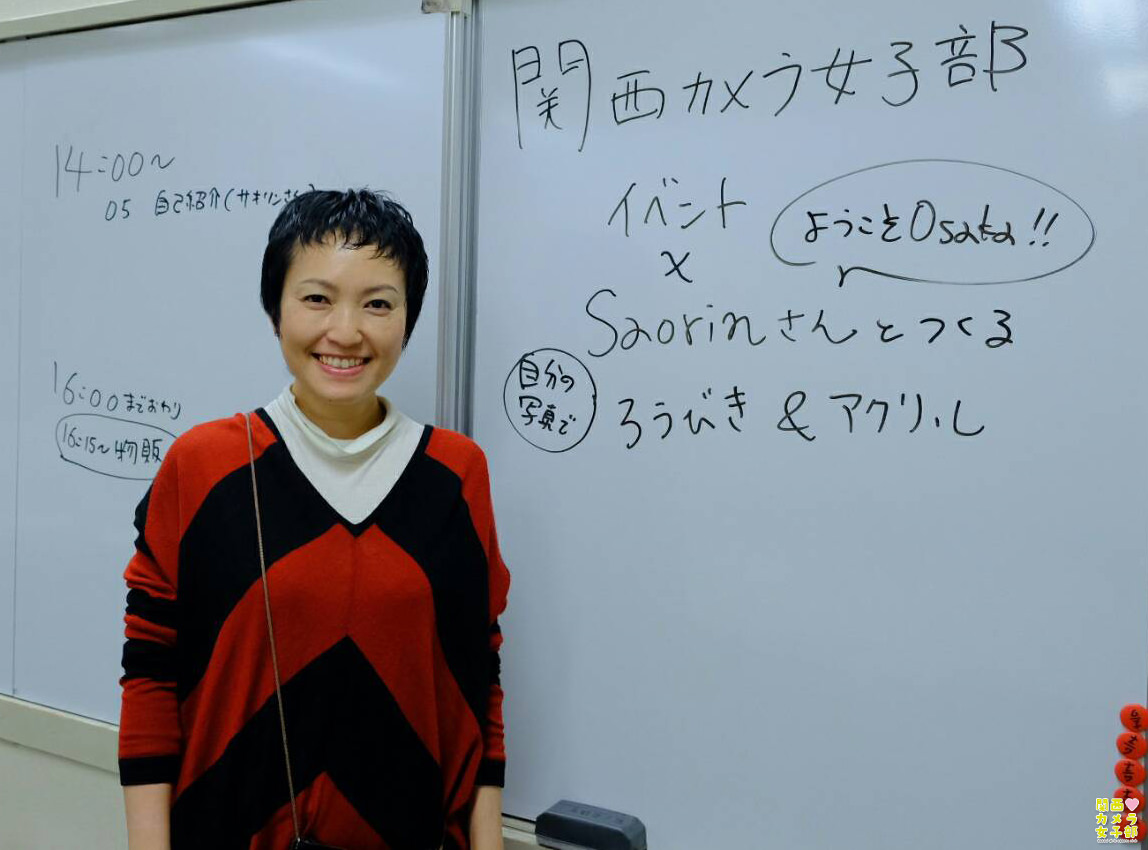 14:00〜
05 自己紹介(サオリンさん)
16:00までおわり
16:15〜物販
関西カメラ女子部
イベント
ようこそOsaka!!
×
Saorinさんとつくる
自分の
写真で
ろうびき&アクリル
関西
カメラ
女子部